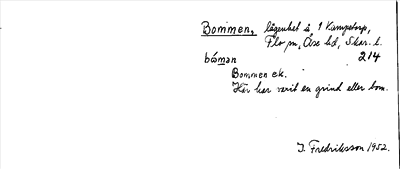 Bommen, lägenhet å 1 Kampetorp,
Flo sn, Åse hd, Skar. l.
bómən 214
Bommen ek.
Här har varit en grind eller bom.
I. Fredriksson 1952.